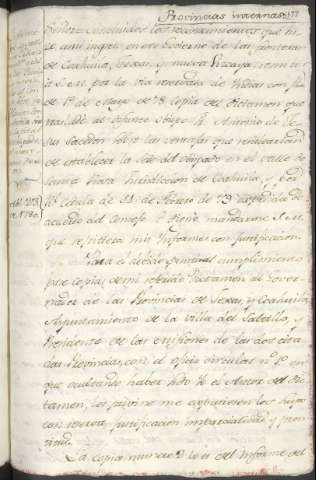 Provincias internas
177
Señor. Concluidos los reconocimientos que hi-
ce a mi ingreso en este Gobierno de las fronteras
de Coahuila, Texas, y nueva Vizcaya, remití
a S.M. por la via reservada de Indias con fha
de 1º de Mayo de 78 Copia del Dictamen que
trasladé al difunto Obispo Fr. Antonio de Je-
sus Sacedon sobre las ventajas que resultarian
de establecer la Sede del Obispado en el valle de
Santa Rosa Jurisdiccion de Coahuila, y en
Rl. Cedula de 11 de Febrero de 79 expedida de
acuerdo del Consejo se sirve mandarme S.M.
que repitiera mis Informes con justificacion.
Para el devido puntual cumplimiento
pasé copias de mi referido Dictamen al Gover-
nador de las Provincias de Texas, y Coahuila,
Ayuntamiento de la Villa del Saltillo, y
Presidente de las misiones de las dos cita-
das Provincias, con el oficio circular nº
que ocultando haber sido Yo el Autor del Dic-
tamen, les previne me expusiesen los suyos
con verdad, justificacion imparcialidad y pron-
titud.
La copia numero 2 lo es del Informe del